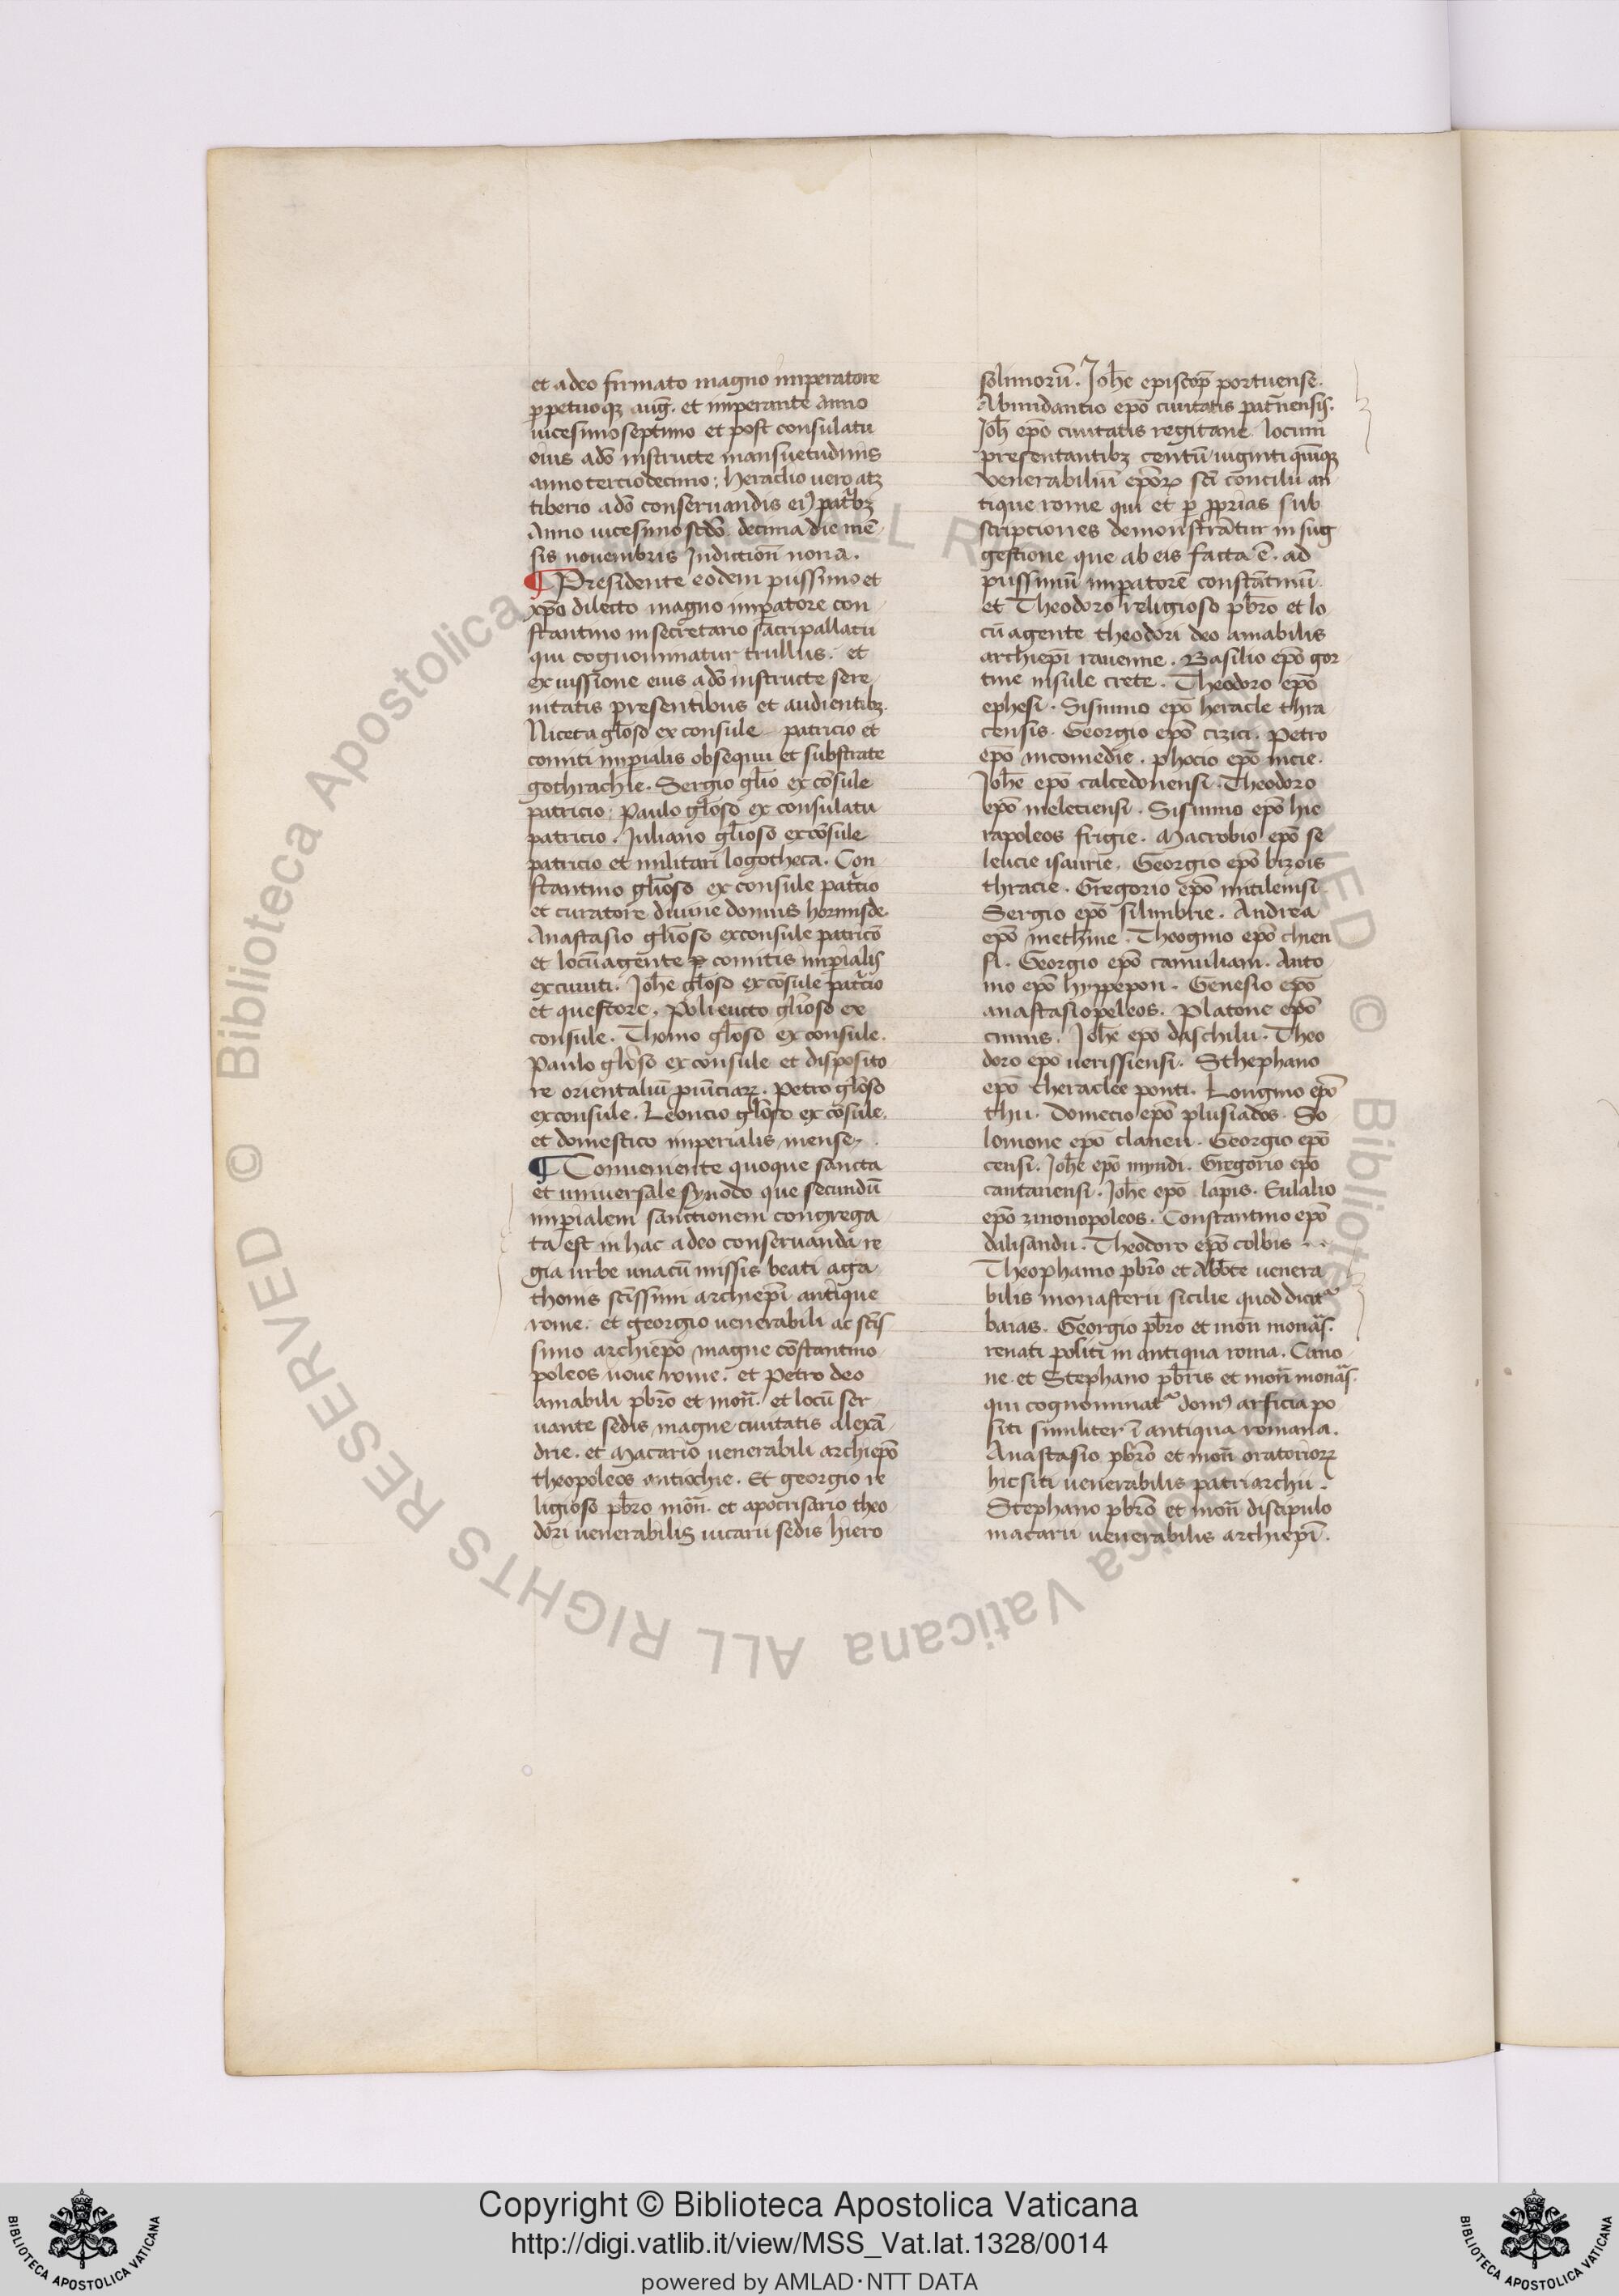 et a deo firmato magno imperatore
ꝑpetuoqꝫ aug̃. et imperante anno
uicesimoseptimo et post consulatu
eius a dõ instructe mansuetudinis
anno terciodecimo; heraclio uero atqꝫ
tiberio a dõ conseruandis eiꝯ patⁱbꝫ
Anno uicesimo scd̃o. decima die mẽ
sis nouembris Indictioñ nona.
¶ Presidente eodem piissimo et
xp̃o dilecto magno imꝑatore con
stantino in secretario sacri pallatii
qui cognominatur trullus. et
ex iussione eius a dõ instructe sere
nitatis presentibus et audientibꝫ.
Niceta gl̃oso ex consule patricio et
comiti imꝑialis obsequii et substrate
gothrachie. Sergio gl̃io ex cõsule
patricio; Paulo gl̃oso ex consulatu
patricio. Juliano gl̃ioso ex cõsule
patricio et militari logotheca. Con
stantino gl̃ioso ex consule patⁱcio
et curatore diuine domus hormisde.
Anastasio gl̃ioso exconsule patricõ
et locũ agente ꝑ comitis imꝑialis
excuuiti. Joh̃e gl̃oso ex cõsule patⁱcio
et questore. Polieucto gl̃ioso ex
consule. Thomo gl̃oso ex consule.
Paulo gl̃ioso ex consule et disposito
re orientaliũ ꝓuĩciaꝝ. Petro gl̃ioso
ex consule. Leoncio gl̃ioso ex cõsule.
et domestico imperialis mense.
¶ Conueniente quoque sancta
et uniuersale synodo que secundũ
imꝑialem sanctionem congrega
ta est in hac a deo conseruanda re
gia urbe unacũ missis beati aga
thonis sc̃issimi archiep̃i antique
rome. et georgio uenerabili ac sc̃is
simo archiep̃o magne cõstantino
poleos noue rome. et Petro deo
amabili pb̃ro et moñ. et locũ ser
uante sedis magne ciuitatis alexã
drie. et Macario uenerabili archiep̃o
theopoleos antiochie. Et georgio re
ligioso pb̃ro moñ. et apocrisario theo
dori uenerabilis uicarii sedis hiero
solimorũ. Joh̃e episcop̃ portuense.
Abundantio ep̃o ciuitatis pat̃nensis.
Joh̃ ep̃o ciuitatis regitane locum
presentantibꝫ centũ uiginti quĩqꝫ
venerabiliũ ep̃oꝝ sc̃i concilii an
tique rome qui et ꝑ ꝓprias sub
scripciones demonstrãtur in sug
gestione que ab eis facta ẽ. ad
piissimũ imꝑatorẽ constãtinũ.
et Theodoro religioso pb̃ro et lo
cũ agente theodori deo amabilis
archiep̃i rauenne. Basilio ep̃o gor
tine insule crete. Theodoro ep̃o
ephesi. Sisinnio ep̃o heracle thra
censis. Georgio ep̃o cizici. Petro
ep̃o nicomedie. photio ep̃o nicie.
Joh̃e ep̃o calcedonensi. Theodoro
ep̃o meletiensi. Sisinnio ep̃o hie
rapoleos frigie. Macrobio ep̃o se
leucie isaurie. Georgio ep̃o bizois
thracie. Gregorio ep̃o mitilensi.
Sergio ep̃o silimbrie. Andrea
ep̃o methine. Theognio ep̃o chien
si. Georgio ep̃o camuliani. Anto
nio ep̃o hyppepon. Genesio ep̃o
anastasiopoleos. Platone ep̃o
cinnis. Joh̃e ep̃o daschilii. Theo
doro ep̃o uerissiensi. Sthephano
ep̃o theraclee ponti. Longino ep̃o
thii. Domecio ep̃o plusiados. So
lomone ep̃o claneii. Georgio ep̃o
censi. Joh̃e ep̃o myndi. Gregorio ep̃o
cantanensi. Joh̃e ep̃o lapis. Eulalio
ep̃o zinonopoleos. Constantino ep̃o
dalisandii. Theodoro ep̃o colbis
Theophanio pb̃ro et Abb̃te uenera
bilis monasterii sicilie quod dicit᷑
baias. Georgio pb̃ro et moñ monãs.
renati positi in antiqua roma. Cono
ne et Stephano pb̃ris et moñ monãs.
qui cognominat᷑ domꝯ arsicia po
siti similiter ĩ antiqua romana.
Anastasio pb̃ro et moñ oratorioꝝ
hic siti uenerabilis patriarchii.
Stephano pb̃ro et moñ discipulo
macarii uenerabilis archiep̃i.
© Biblioteca Apostolica Vaticana ALL RIGHTS RESERVED
Copyright © Biblioteca Apostolica Vaticana
http://digi.vatlib.it/view/MSS_Vat.lat.1328/0014
powered by AMLAD·NTT DATA
BIBLIOTECA APOSTOLICA VATICANA
BIBLIOTECA APOSTOLICA VATICANA